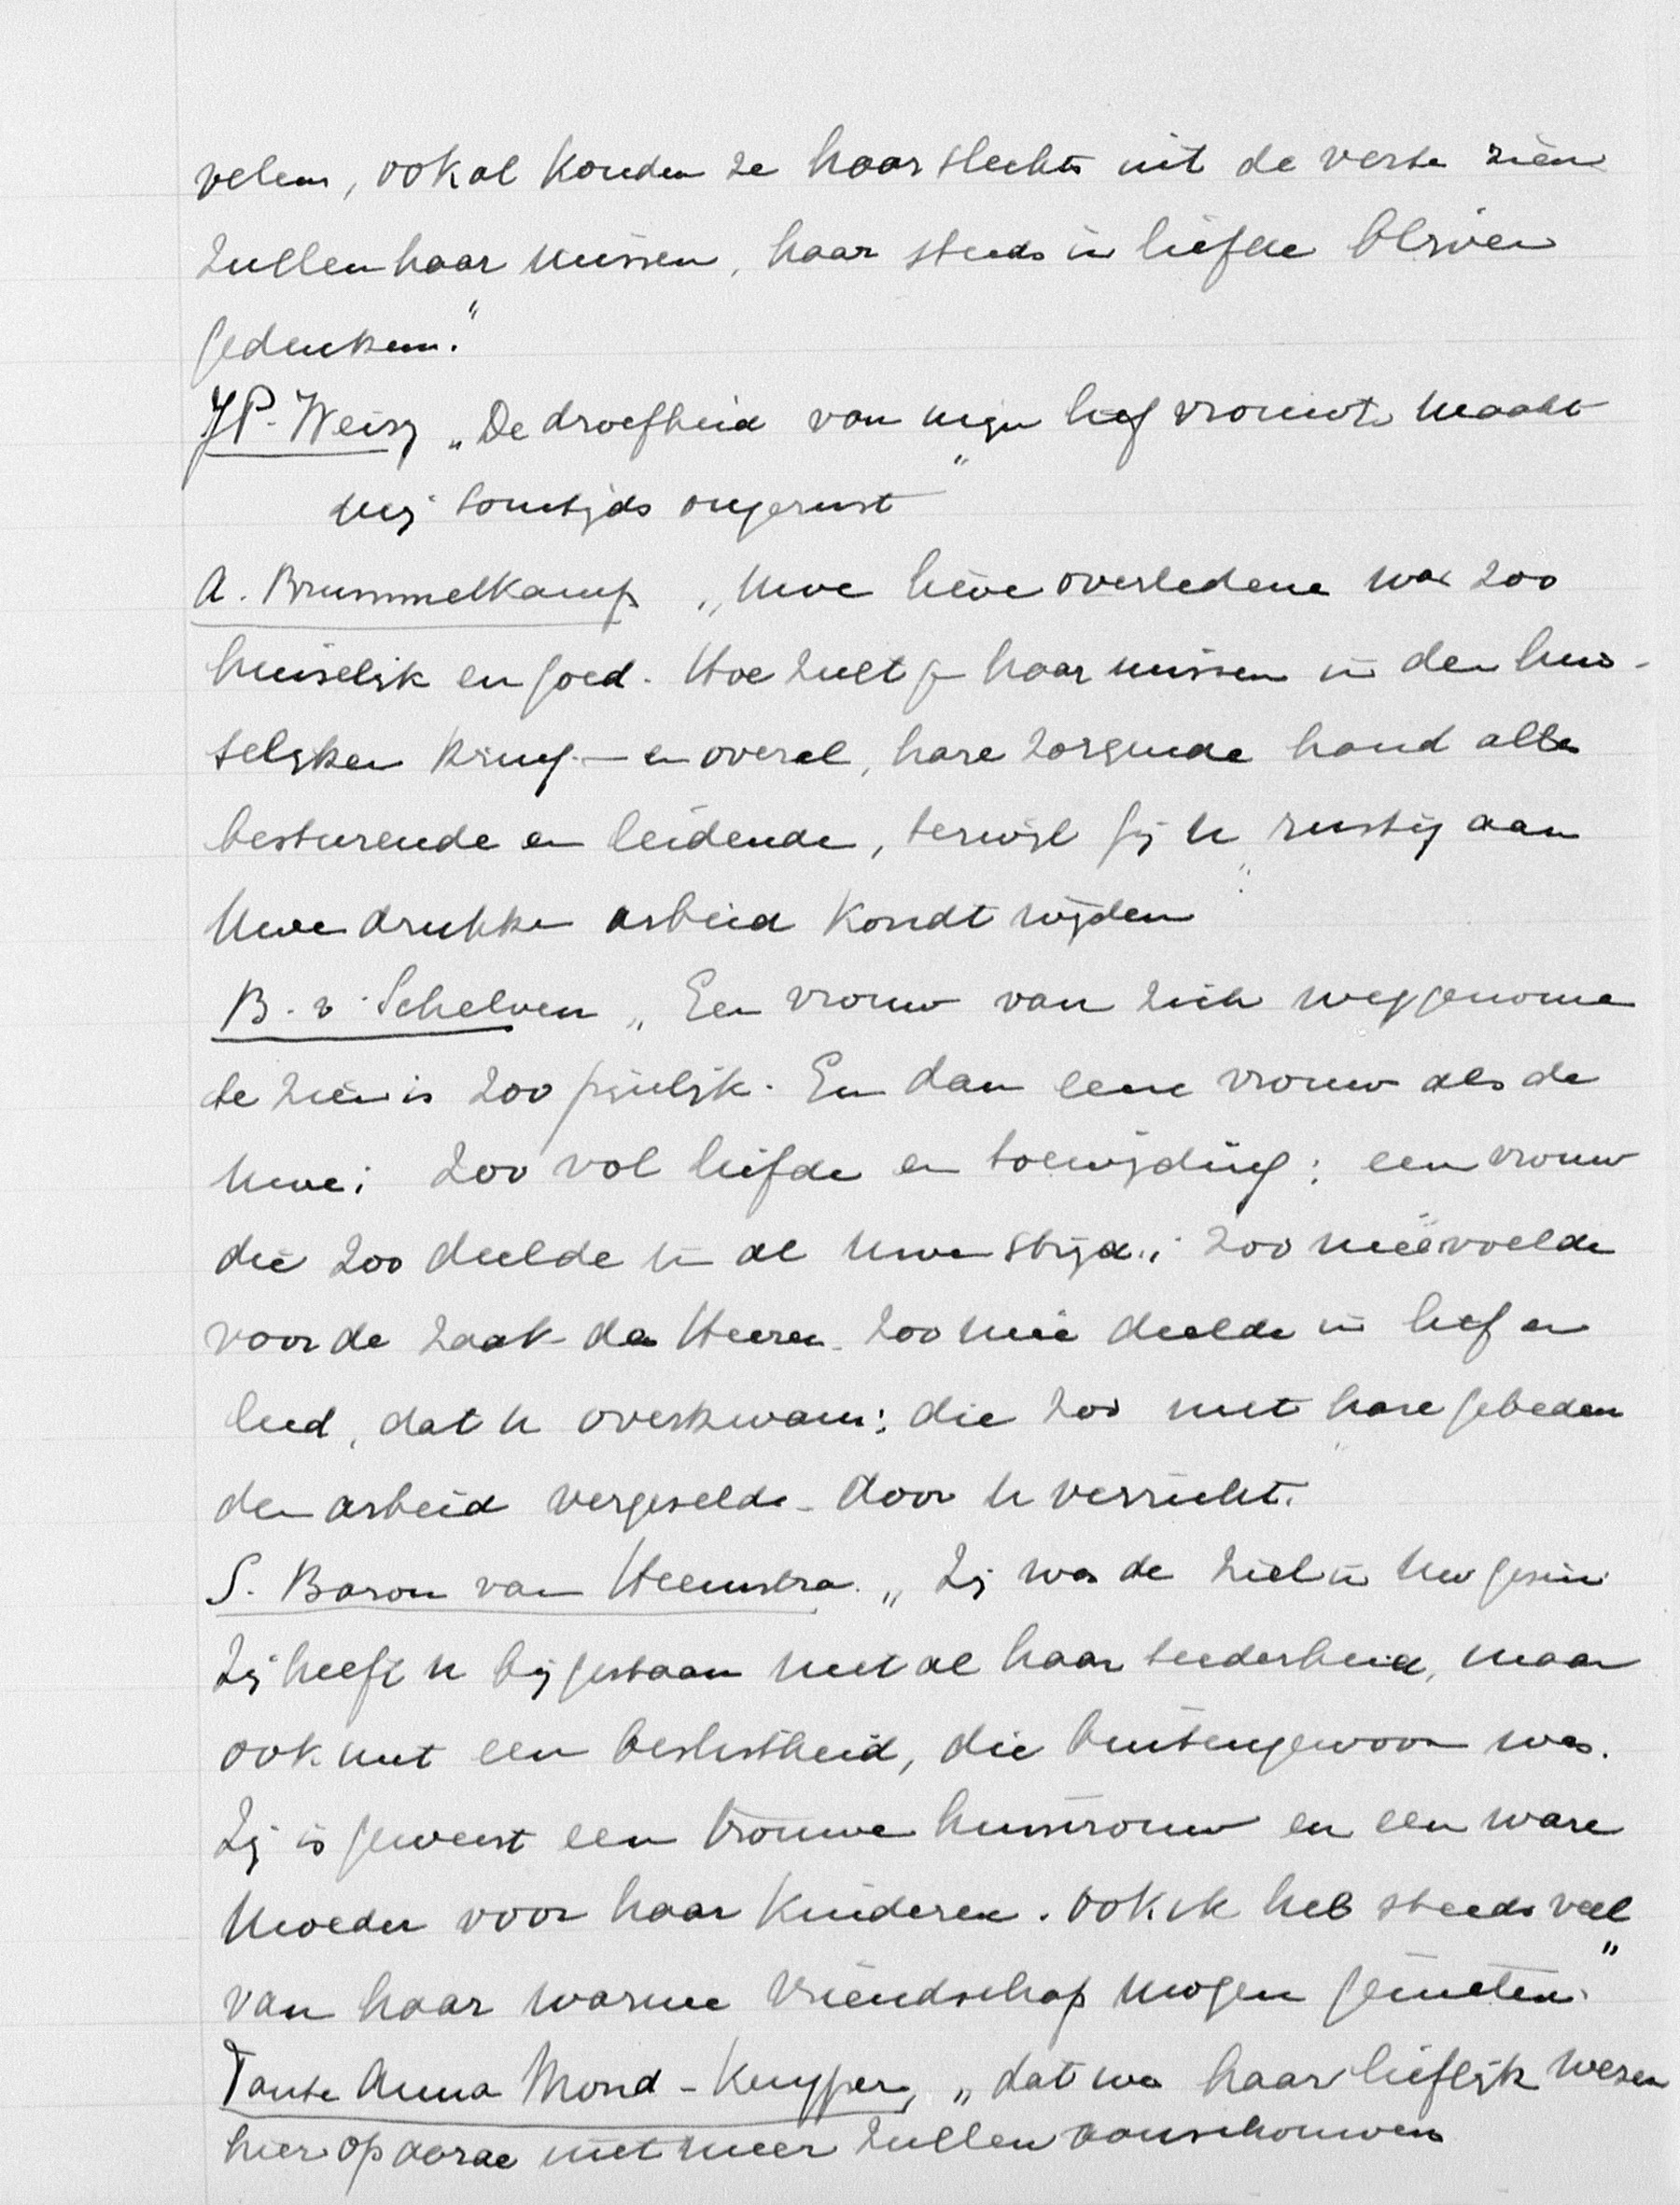 velen, ook al konden ze haar slechts uit de verte zien
zullen haar missen, haar steeds in liefde blijven
gedenken."
JP. Weisz „De droefheid van mijn lief vrouwtje maakt
mij somtijds ongerust"
A. Brummelkamp „Uwe lieve overledene was zoo
huiselijk en goed. Hoe zult ge haar missen in den huis-
selijken kring — en overal, hare zorgende hand alles
besturende en leidende, terwijl gij U rustig aan
Uwen drukken arbeid kondt wijden"
B. v. Schelven „Een vrouw van zich weggenomen
te zien is zoo pijnlijk. En dan eene vrouw als de
Uwe; zoo vol liefde en toewijding; een vrouw
die zoo deelde in al Uwen strijd; zoo meêvoelde
voor de zaak des Heeren. zoo meê deelde in lief en
leed, dat U overkwam; die zoo met hare gebeden
den arbeid vergeselde door U verricht."
S. Baron van Heemstra. „Zij was de ziel in Uw gezin
Zij heeft U bijgestaan met al haar teederheid, maar
ook met een beslistheid, die buitengewoon was.
Zij is geweest een trouwe huisvrouw en een ware
Moeder voor haar kinderen. Ook ik heb steeds veel
van haar warme vriendschap mogen genieten."
Tante Anna Mond-Kuyper, „dat we haar lieflijk wezen
hier op aarde niet meer zullen aanschouwen